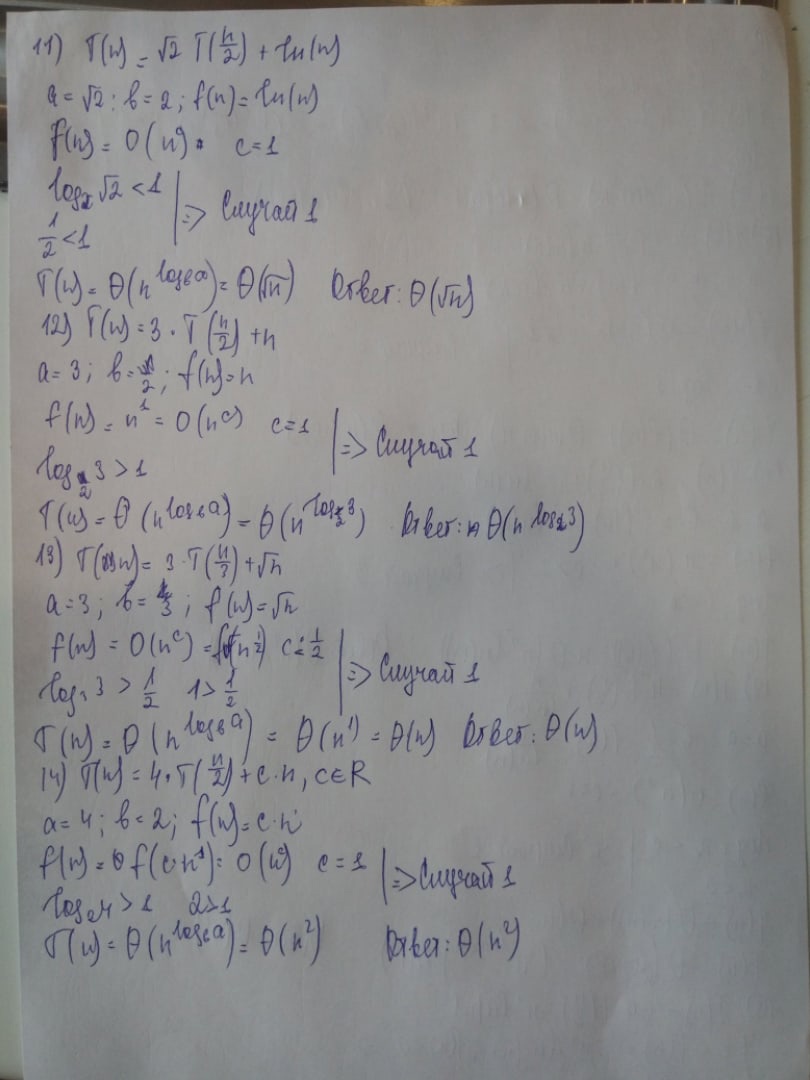 11) T(n) = √2 T(n/2) + ln(n)
a = √2 ; b = 2 ; f(n) = ln(n)
f(n) = O(n^c) c = 1
log_2 √2 < 1 | => Случай 1
1/2 < 1
T(n) = Θ(n^(log_b a)) = Θ(√n) Ответ: Θ(√n)
12) T(n) = 3 · T(n/2) + n
a = 3 ; b = 2 ; f(n) = n
f(n) = n^1 = O(n^c) c = 1 | => Случай 1
log_2 3 > 1
T(n) = Θ(n^(log_b a)) = Θ(n^(log_2 3)) Ответ: Θ(n^(log_2 3))
13) T(n) = 3 · T(n/3) + √n
a = 3 ; b = 3 ; f(n) = √n
f(n) = O(n^c) = (n^(1/2)) c = 1/2 | => Случай 1
log_3 3 > 1/2 1 > 1/2
T(n) = Θ(n^(log_b a)) = Θ(n^1) = Θ(n) Ответ: Θ(n)
14) T(n) = 4 · T(n/2) + c·n, c ∈ R
a = 4 ; b = 2 ; f(n) = c·n
f(n) = f(c·n^1) = O(n^c) c = 1 | => Случай 1
log_2 4 > 1 2 > 1
T(n) = Θ(n^(log_b a)) = Θ(n^2) Ответ: Θ(n^2)